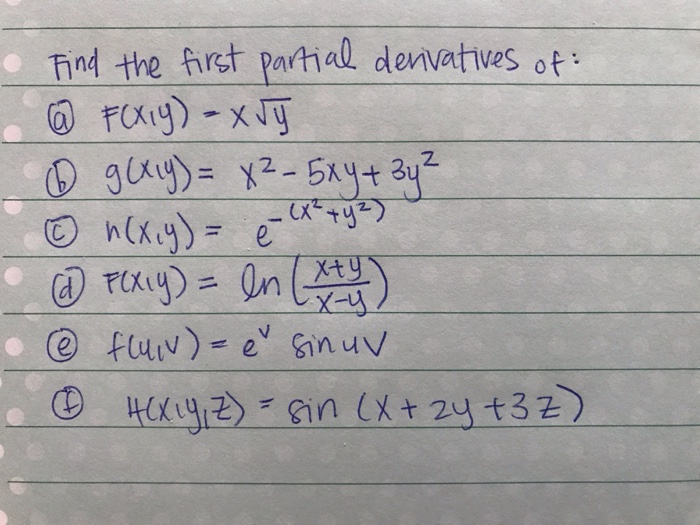 Find the first partial derivatives of:
(a) F(x,y) = x√y
(b) g(x,y) = x² - 5xy + 3y²
(c) h(x,y) = e^-(x²+y²)
(d) F(x,y) = ln((x+y)/(x-y))
(e) f(u,v) = e^v sin uv
(f) H(x,y,z) = sin (x + 2y + 3z)